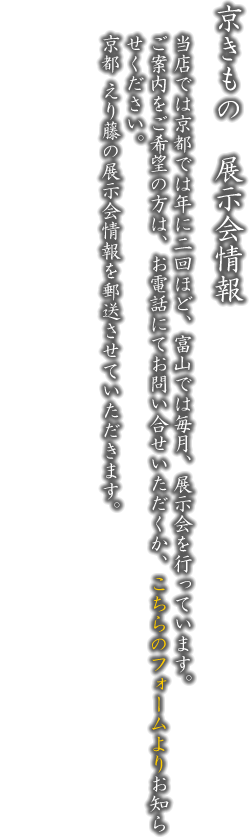 京きもの　展示会情報
当店では京都では年に二回ほど、富山では毎月、展示会を行っています。
ご案内をご希望の方は、お電話にてお問い合せいただくか、こちらのフォームよりお知ら
せください。
京都 えり藤の展示会情報を郵送させていただきます。